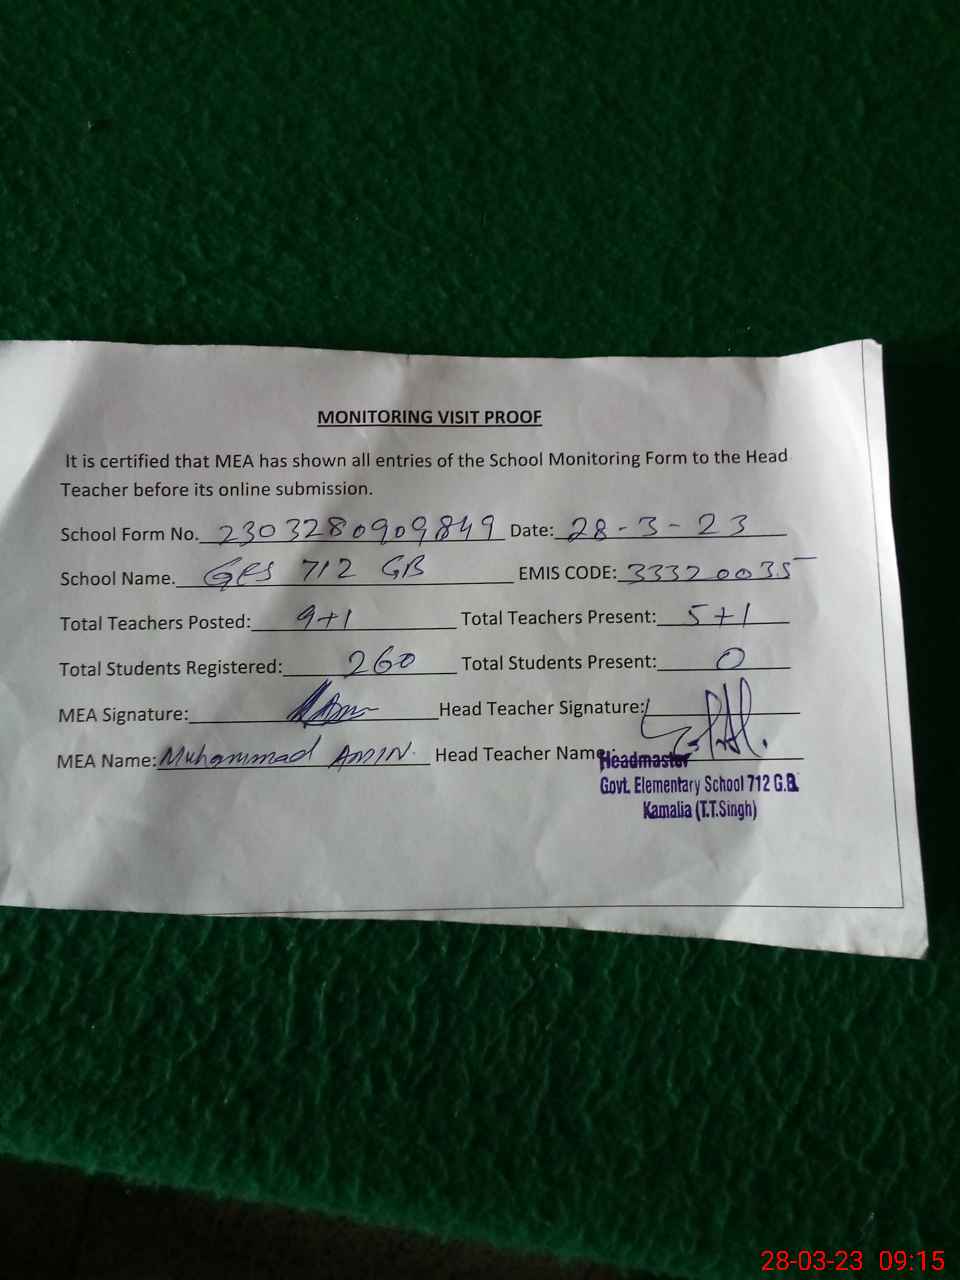 MONITORING VISIT PROOF
It is certified that MEA has shown all entries of the School Monitoring Form to the Head
Teacher before its online submission.
School Form No. 2303280909849 Date: 28-3-23
School Name. GES 712 GB EMIS CODE: 33320035
Total Teachers Posted: 9+1 Total Teachers Present: 5+1
Total Students Registered: 260 Total Students Present: 0
MEA Signature: Head Teacher Signature:
MEA Name: Muhammad AMIN. Head Teacher Name:
Headmaster
Govt. Elementary School 712 G.B.
Kamalia (T.T.Singh)
28-03-23 09:15